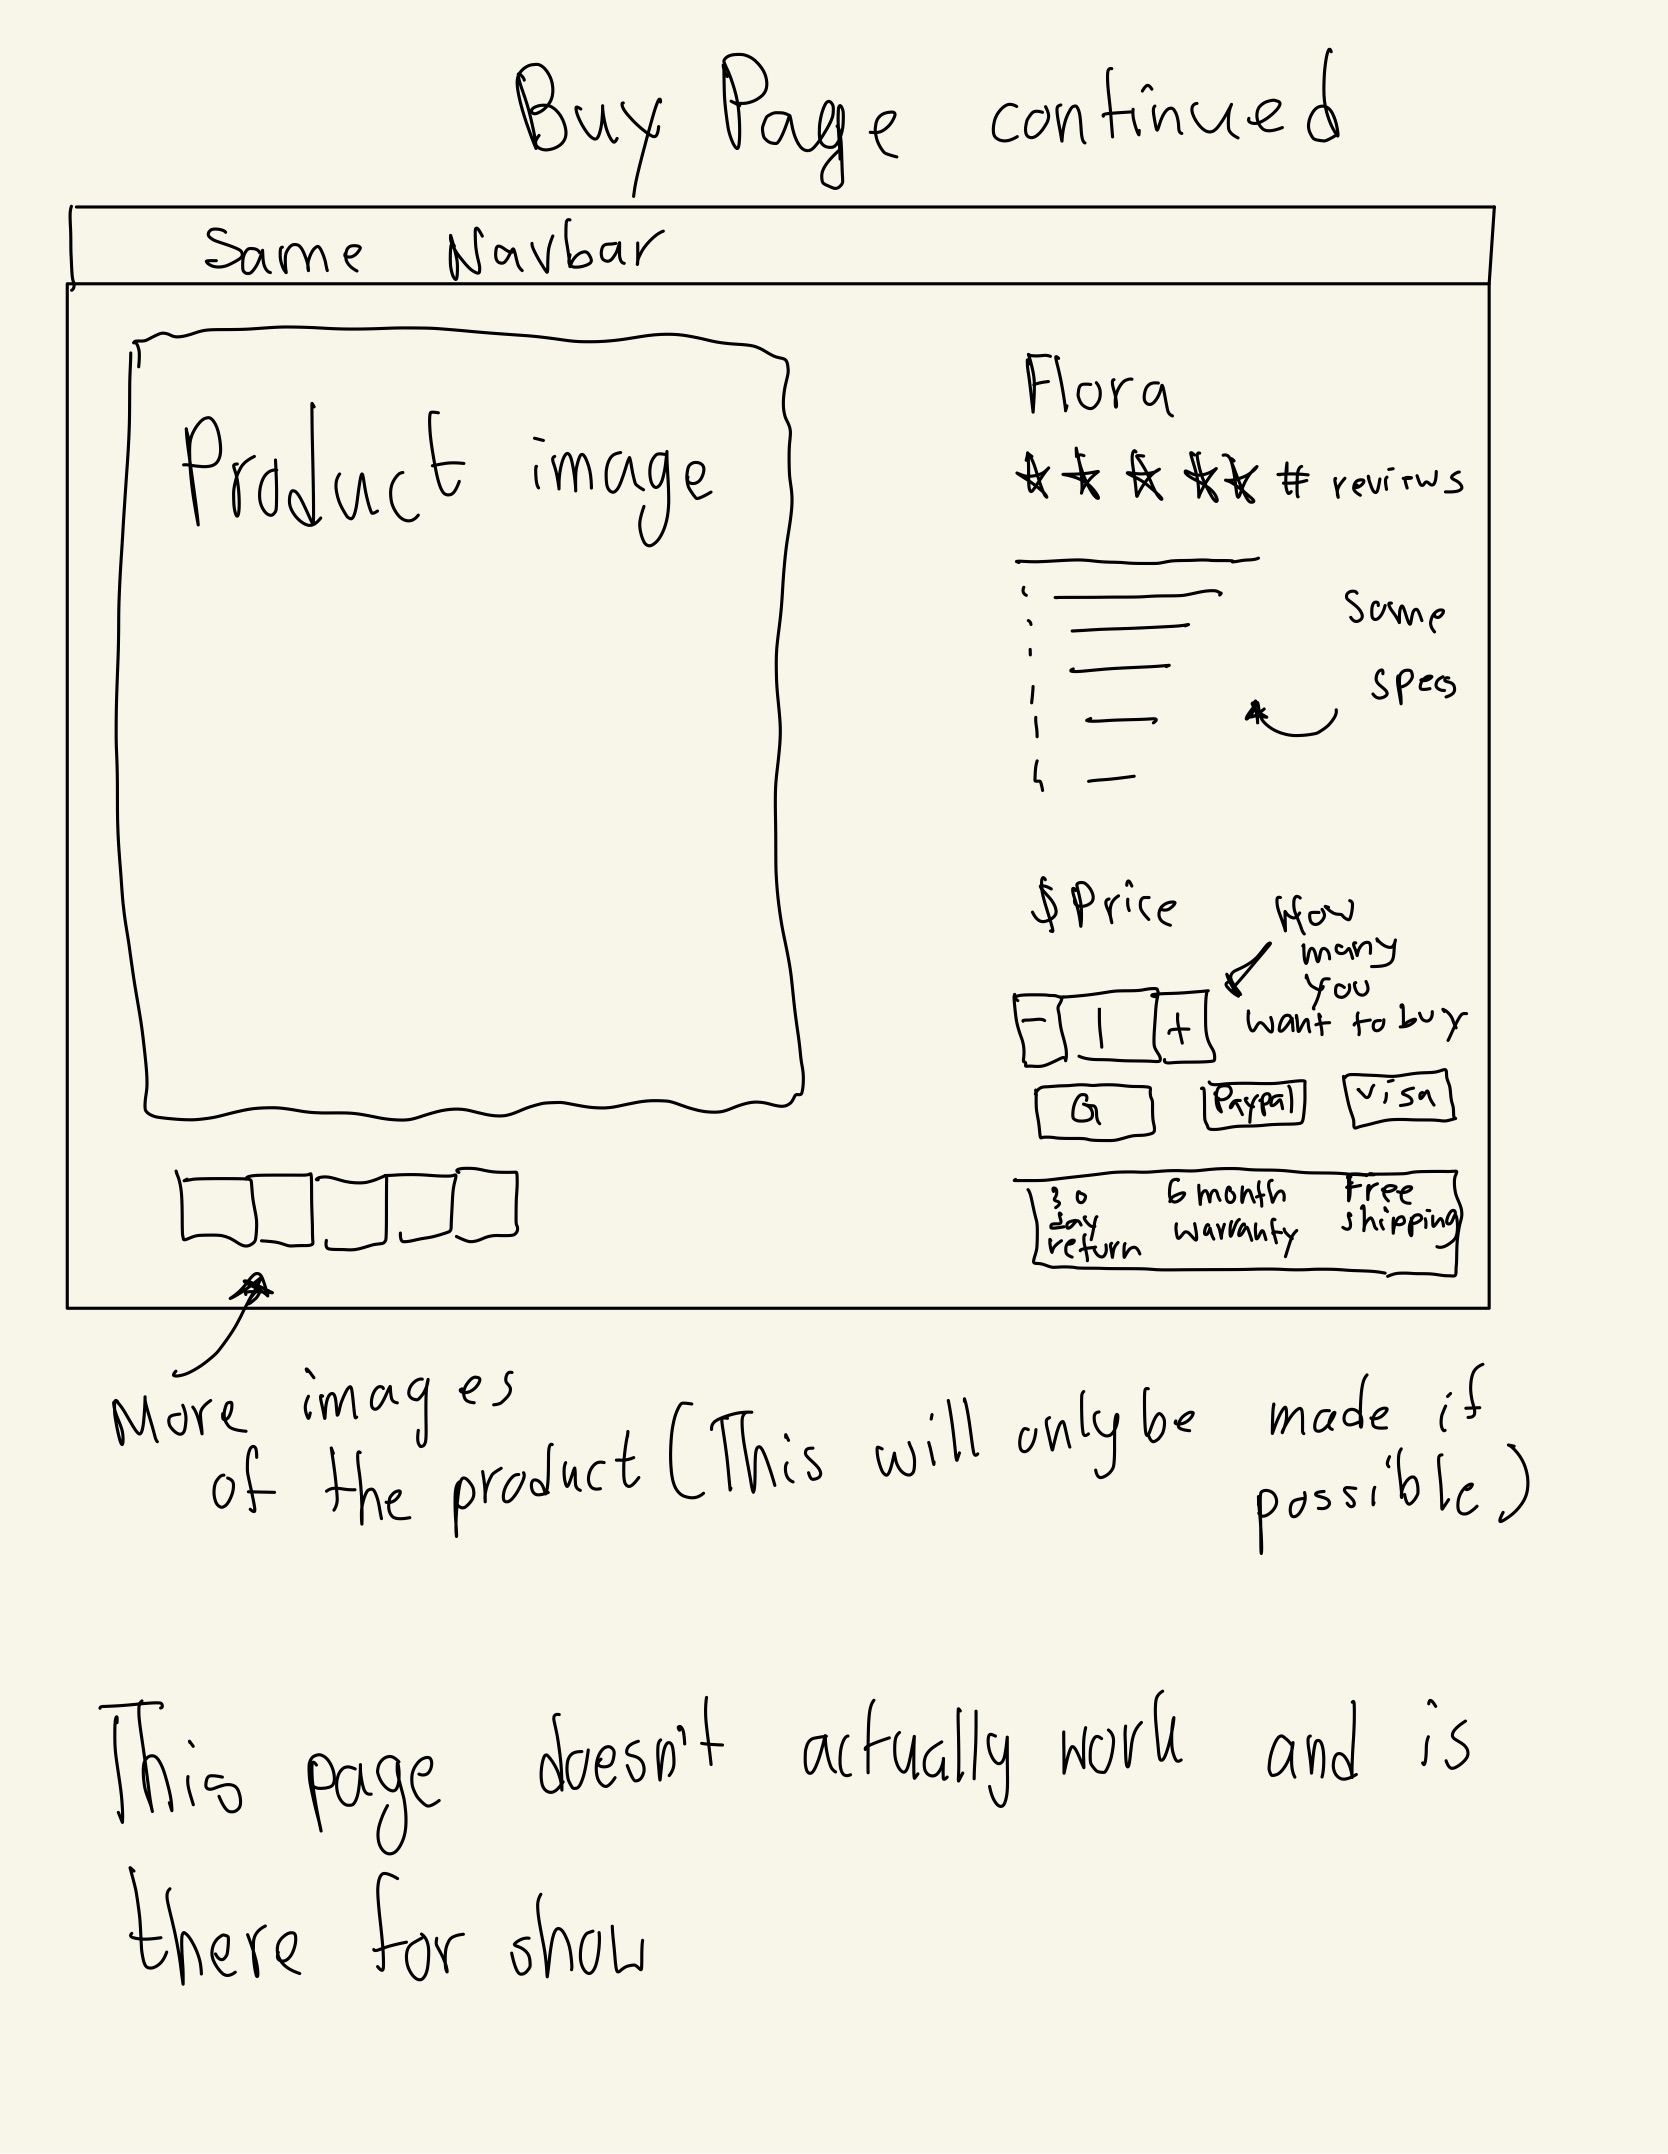 Buy Page continued
Same Navbar
Product image
Flora
# reviews
Some
specs
$Price
How
many
you
want to buy
- 1 +
G Paypal Visa
30
day
return
6 month
warranty
Free
shipping
More images
of the product (This will only be made if
possible)
This page doesn't actually work and is
there for show